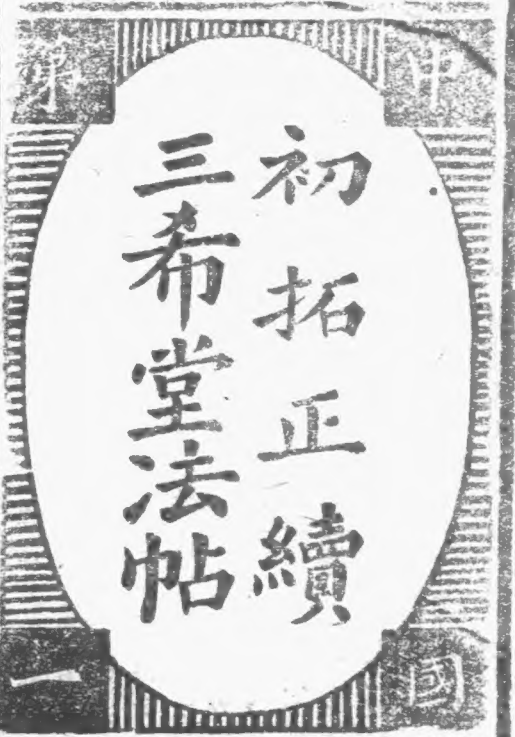 中國第一
初拓正續
三希堂法帖